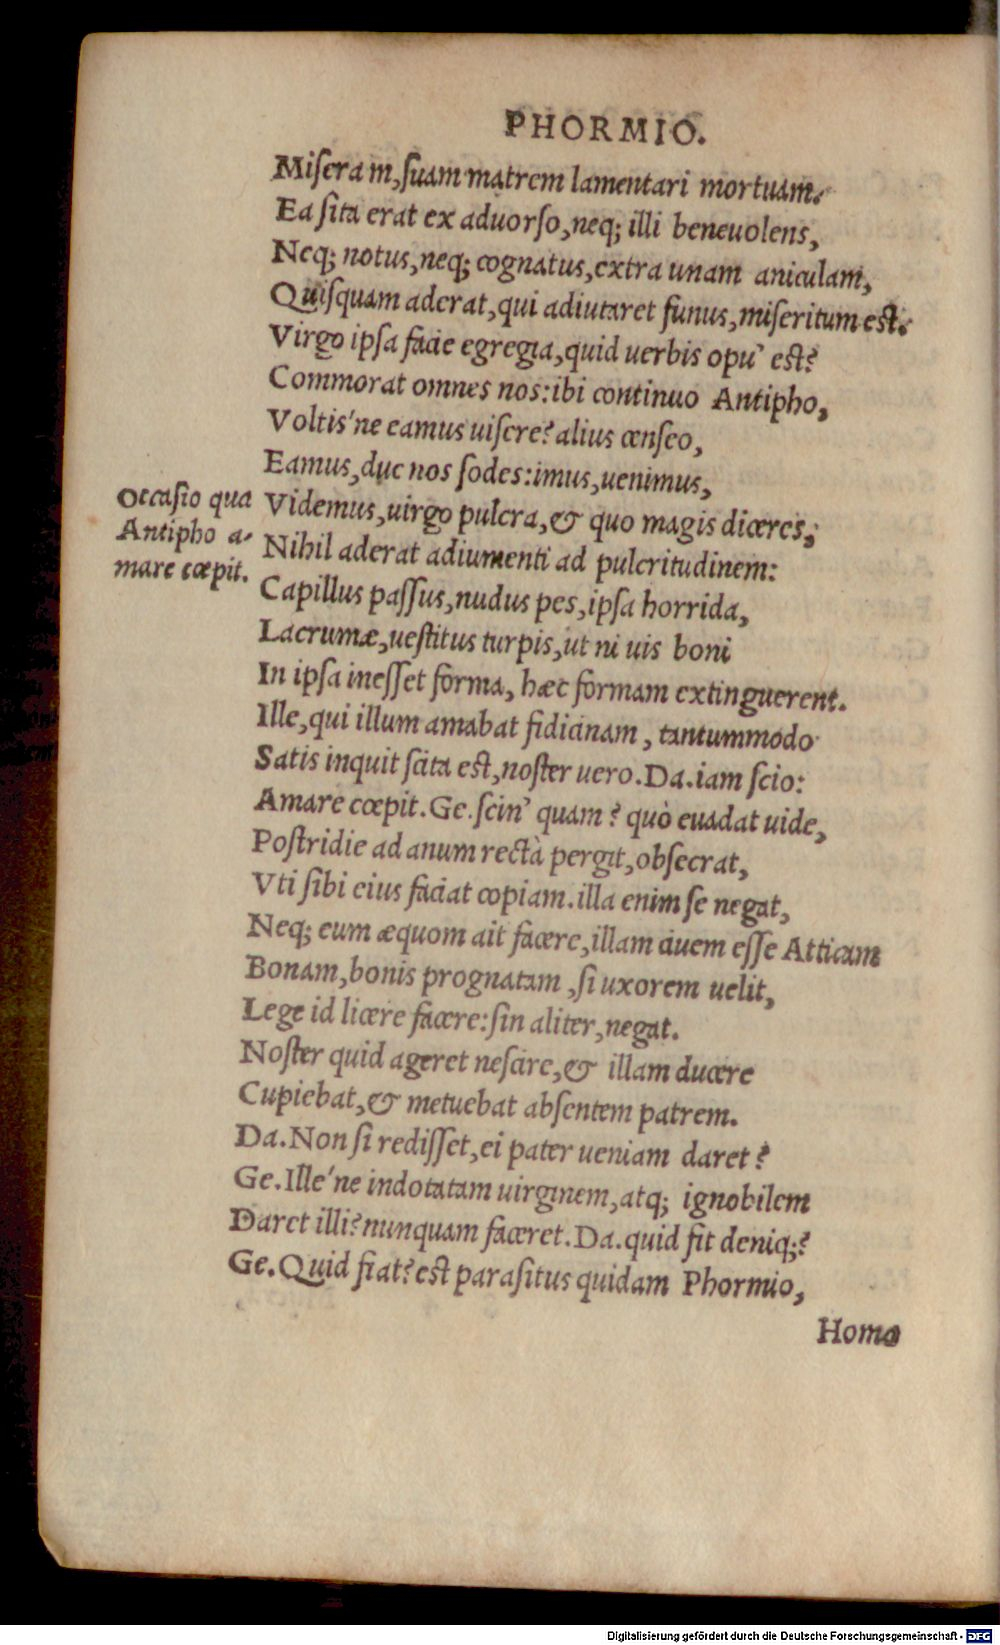 PHORMIO.
Miſera m, ſuam matrem lamentari mortuam.
Ea ſita erat ex aduorſo, neq; illi beneuolens,
Neq; notus, neq; cognatus, extra unam aniculam,
Quiſquam aderat, qui adiutaret funus, miſeritum eſt.
Virgo ipſa facie egregia, quid uerbis opu' eſt?
Commorat omnes nos: ibi continuo Antipho,
Voltis'ne eamus uiſere? alius cenſeo,
Eamus, duc nos ſodes: imus, uenimus,
Occaſio qua
Antipho a-
mare cœpit.
Videmus, uirgo pulcra, & quo magis diceres;
Nihil aderat adiumenti ad pulcritudinem:
Capillus paſſus, nudus pes, ipſa horrida,
Lacrumæ, ueſtitus turpis, ut ni uis boni
In ipſa ineſſet forma, hæc formam extinguerent.
Ille, qui illum amabat fidicinam, tantummodo
Satis inquit ſcita eſt, noſter uero. Da. iam ſcio:
Amare cœpit. Ge. ſcin' quam? quò euadat uide,
Poſtridie ad anum rectà pergit, obſecrat,
Vti ſibi eius faciat copiam. illa enim ſe negat,
Neq; eum æquom ait facere, illam ciuem eſſe Atticam
Bonam, bonis prognatam, ſi uxorem uelit,
Lege id licere facere: ſin aliter, negat.
Noſter quid ageret neſcire, & illam ducere
Cupiebat, & metuebat abſentem patrem.
Da. Non ſi rediſſet, ei pater ueniam daret?
Ge. Ille'ne indotatam uirginem, atq; ignobilem
Daret illi? nunquam faceret. Da. quid fit deniq;?
Ge. Quid fiat? eſt paraſitus quidam Phormio,
Homo
Digitalisierung gefördert durch die Deutsche Forschungsgemeinschaft - DFG